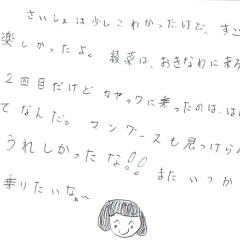 さいしょは少しこわかったけど、すご
楽しかったよ。綾菜は、おきなわに来る
2回目だけどカヤックに乗ったのは、は
てなんだ。マングースも見つけら
うれしかったな!!またいつか
乗りたいなぁ〜